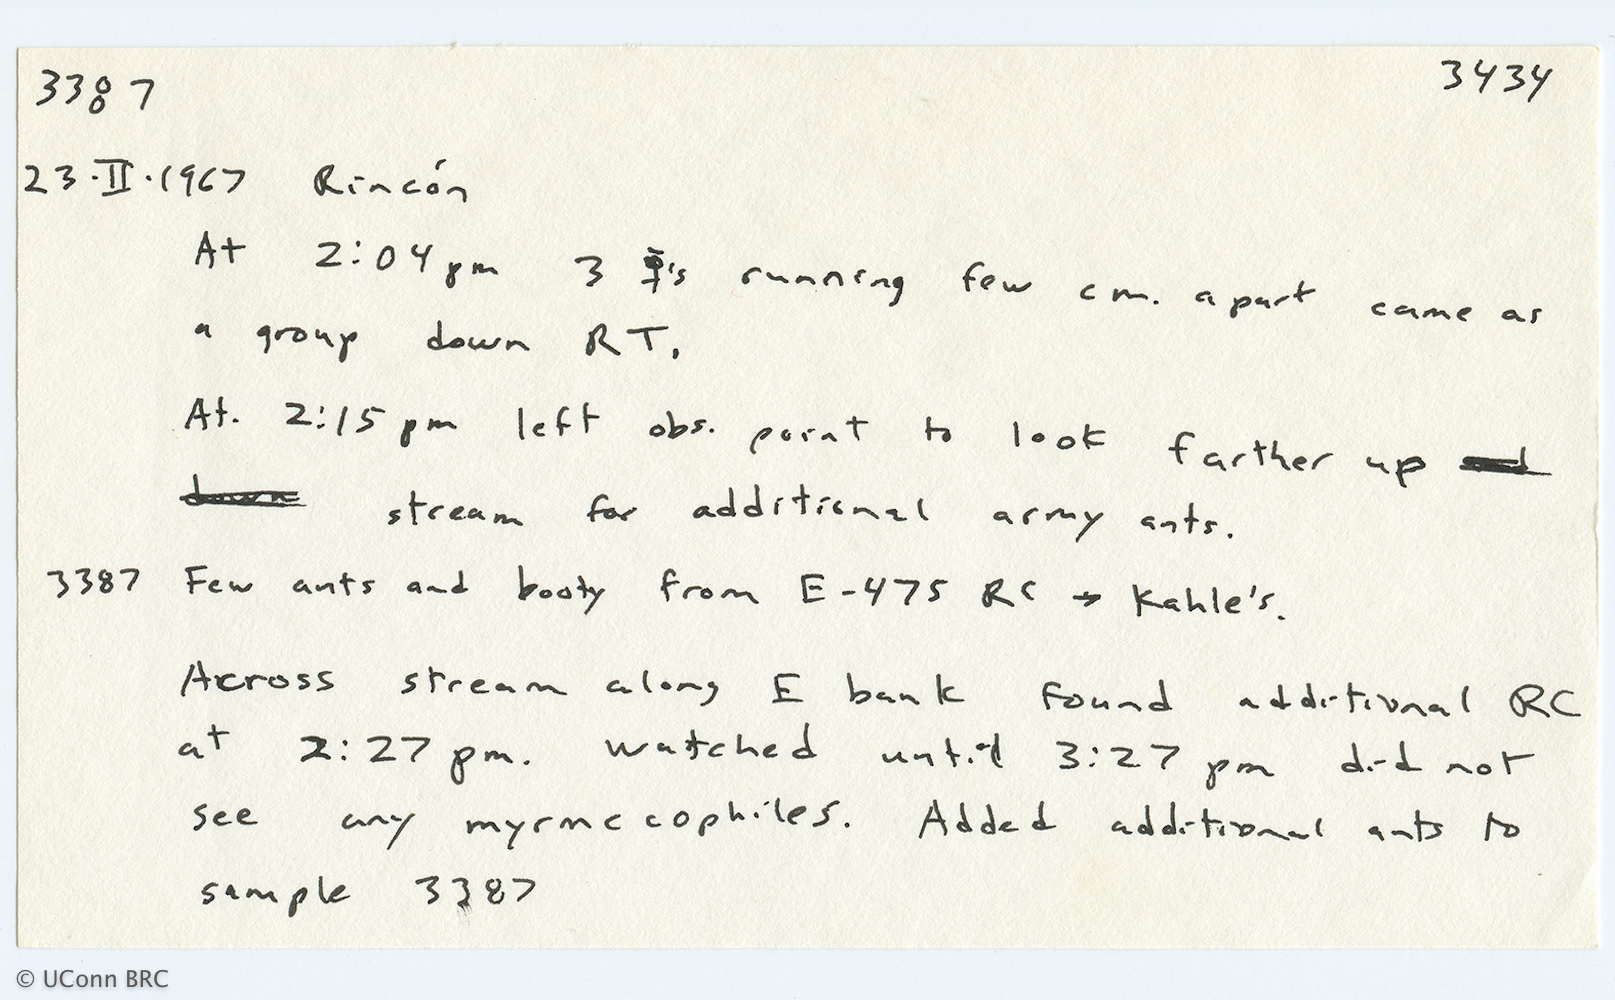 3387 3434
23·II·1967 Rincón
At 2:04 pm 3 ☿'s running few cm. apart came as
a group down RT.
At. 2:15 pm left obs. point to look farther up
stream for additional army ants.
3387 Few ants and booty from E-475 RC → Kahle's.
Across stream along E bank found additional RC
at 2:27 pm. watched until 3:27 pm did not
see any myrmecophiles. Added additional ants to
sample 3387
© UConn BRC